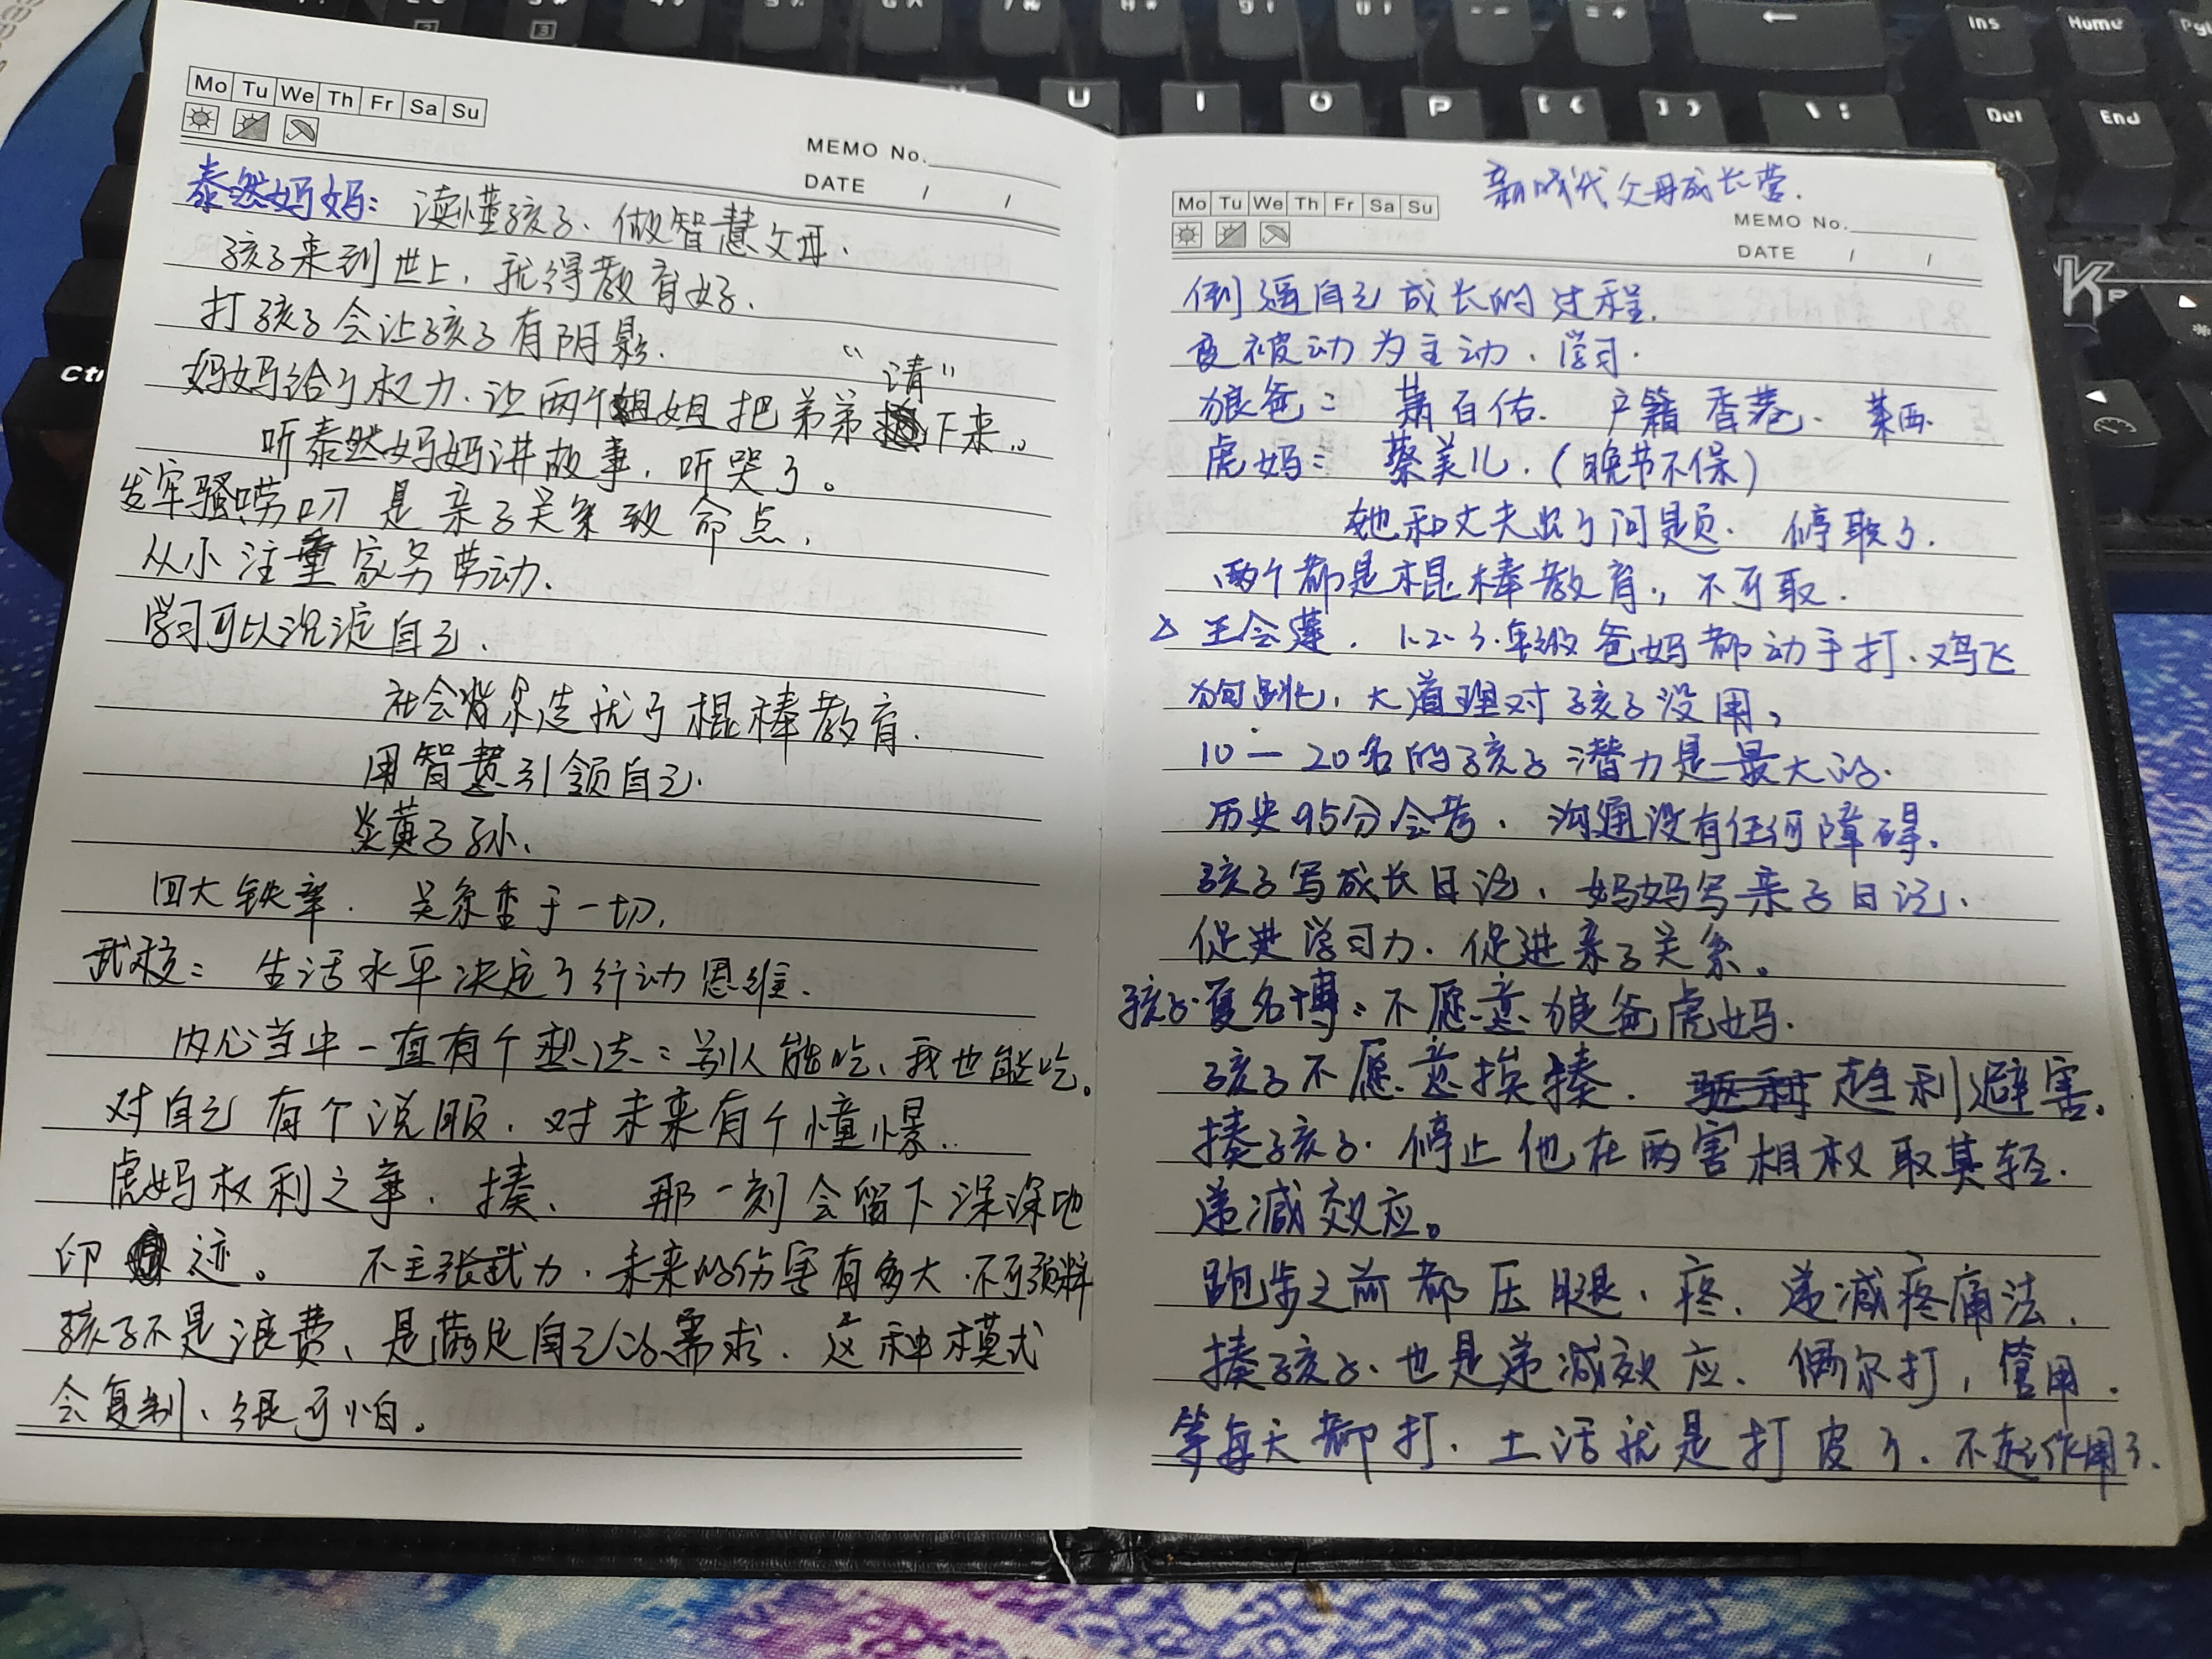 Mo Tu We Th Fr Sa Su
MEMO No.
DATE / /
泰然妈妈：读懂孩子、做智慧父母.
孩子来到世上，就得教育好.
打孩子会让孩子有阴影.
“请”
妈妈给了权力.让两个姐姐把弟弟下来。
听泰然妈妈讲故事，听哭了。
发牢骚唠叨是亲子关系致命点，
从小注重家务劳动.
学习可以沉淀自己.
社会背景造就了棍棒教育.
用智慧引领自己.
炎黄子孙.
四大铁率. 关系重于一切,
武校：生活水平决定了行动思维.
内心当中一直有个想法：别人能吃、我也能吃。
对自己有个说服.对未来有个憧憬..
虎妈权利之争.揍、那一刻会留下深深地
印迹。 不主张武力.未来的伤害有多大.不可预料
孩子不是浪费、是满足自己的需求.这种模式
会复制、很可怕。
新时代父母成长营.
Mo Tu We Th Fr Sa Su
MEMO No.
DATE / /
倒逼自己成长的过程.
变被动为主动、学习.
狼爸：萧百佑. 户籍香港. 莱西.
虎妈：蔡美儿.(晚节不保)
她和丈夫出了问题. 停职了.
两个都是棍棒教育., 不可取.
△ 王会莲. 1.2.3.年级爸妈都动手打.鸡飞
狗跳, 大道理对孩子没用,
10一20名的孩子潜力是最大的.
历史95分会考. 沟通没有任何障碍.
孩子写成长日记、妈妈写亲子日记.
促进学习力.促进亲子关系。
孩子.夏名博：不愿意狼爸虎妈.
孩子不愿意挨揍. 趋利避害.
揍孩子.停止他在两害相权取其轻.
递减效应。
跑步之前都压腿、疼、递减疼痛法,
揍孩子.也是递减效应、偶尔打,管用.
等每天都打.土话就是打皮了.不起作用了.
Ctr
U I O P
Ins Home
Del End